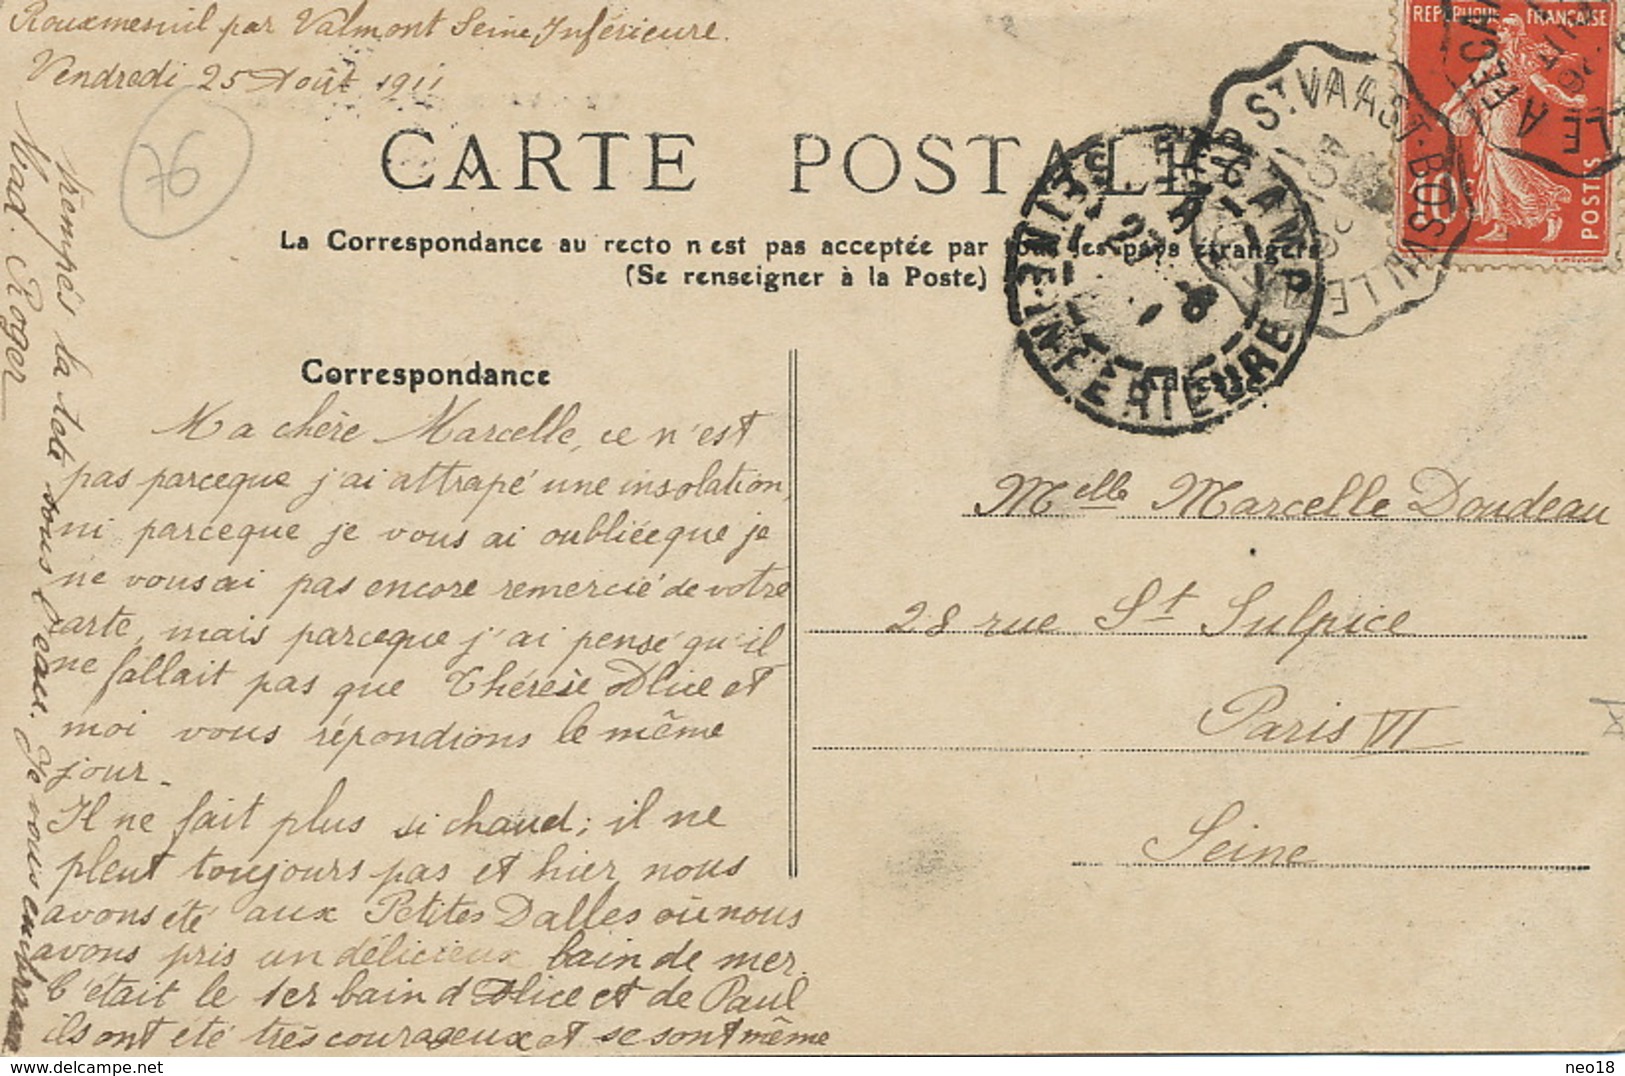 Rouxmesnil par Valmont Seine Inférieure.
Vendredi 25 Août 1911
76
CARTE POSTALE
La Correspondance au recto n'est pas acceptée par tous les pays étrangers
(Se renseigner à la Poste)
REPUBLIQUE FRANÇAISE
10
POSTES
ST VAAST-BOSVILLE
FECAMP
SEINE-INFERIEURE
Correspondance
Adresse
Ma chère Marcelle, ce n'est
pas parceque j'ai attrapé une insolation,
ni parceque je vous ai oubliée que je
ne vous ai pas encore remercié de votre
carte, mais parceque j'ai pensé qu'il
ne fallait pas que Thérèse Alice et
moi vous répondions le même
jour.
Il ne fait plus si chaud; il ne
pleut toujours pas et hier nous
avons été aux Petites Dalles où nous
avons pris un délicieux bain de mer.
C'était le 1er bain d'Alice et de Paul
ils ont été très courageux et se sont même
trempés la tête sous l'eau. Je vous embrasse
Mad. Roger
Melle Marcelle Doudeau
28 rue St Sulpice
Paris VI
Seine
neo18